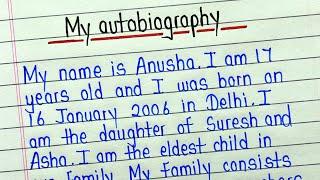 My autobiography
My name is Anusha. I am 17
years old and I was born on
16 January 2006 in Delhi. I
am the daughter of Suresh and
Asha. I am the eldest child in
family. My family consists